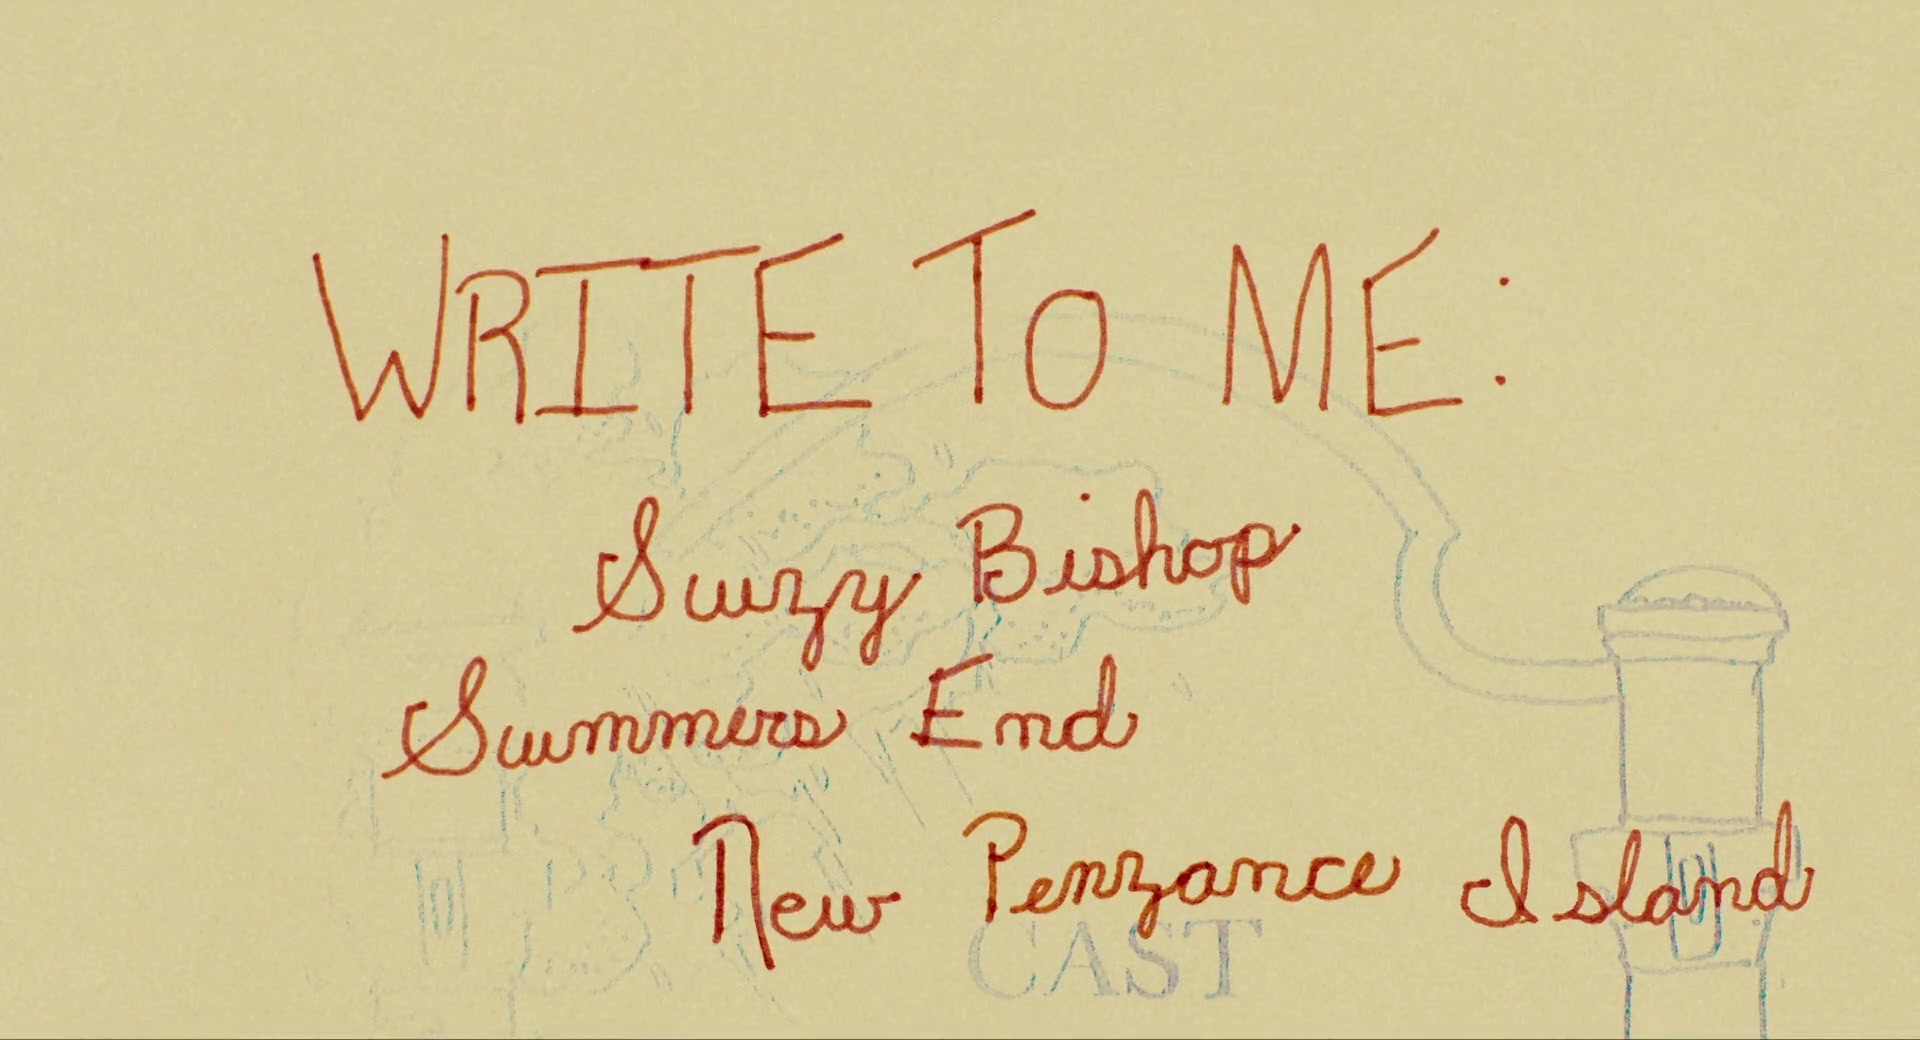 WRITE TO ME:
Suzy Bishop
Summers End
New Penzance Island
CAST